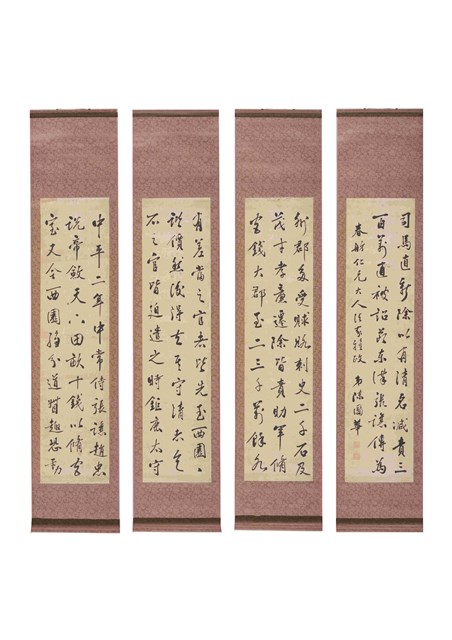 中平二年中常侍張讓趙忠
說帝斂天下田畝十錢以脩宮
室又令西園騶分道督趣恐動
州郡多受賕賂刺史二千石及
茂才孝廉遷除皆責助軍脩
宮錢大郡至二三千萬餘各
有差當之官者皆先至西園
諧價然後得去其守清者乞
不之官皆迫遣之時鉅鹿太守
司馬直新除以有清名減責三
百萬直被詔 錄東漢張讓傳為
春舫仁兄大人法家雅政 弟陳國華